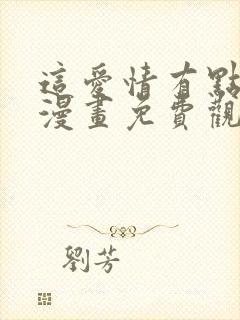 這愛情有點
漫畫免費觀
劉芳